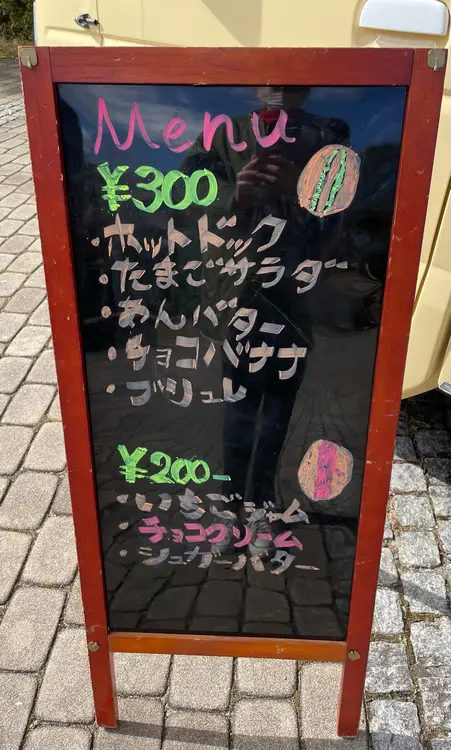 Menu
¥300
・ホットドック
・たまごサラダ
・あんバター
・チョコバナナ
・ブリュレ
¥200-
・いちごジャム
・チョコクリーム
・シュガーバター